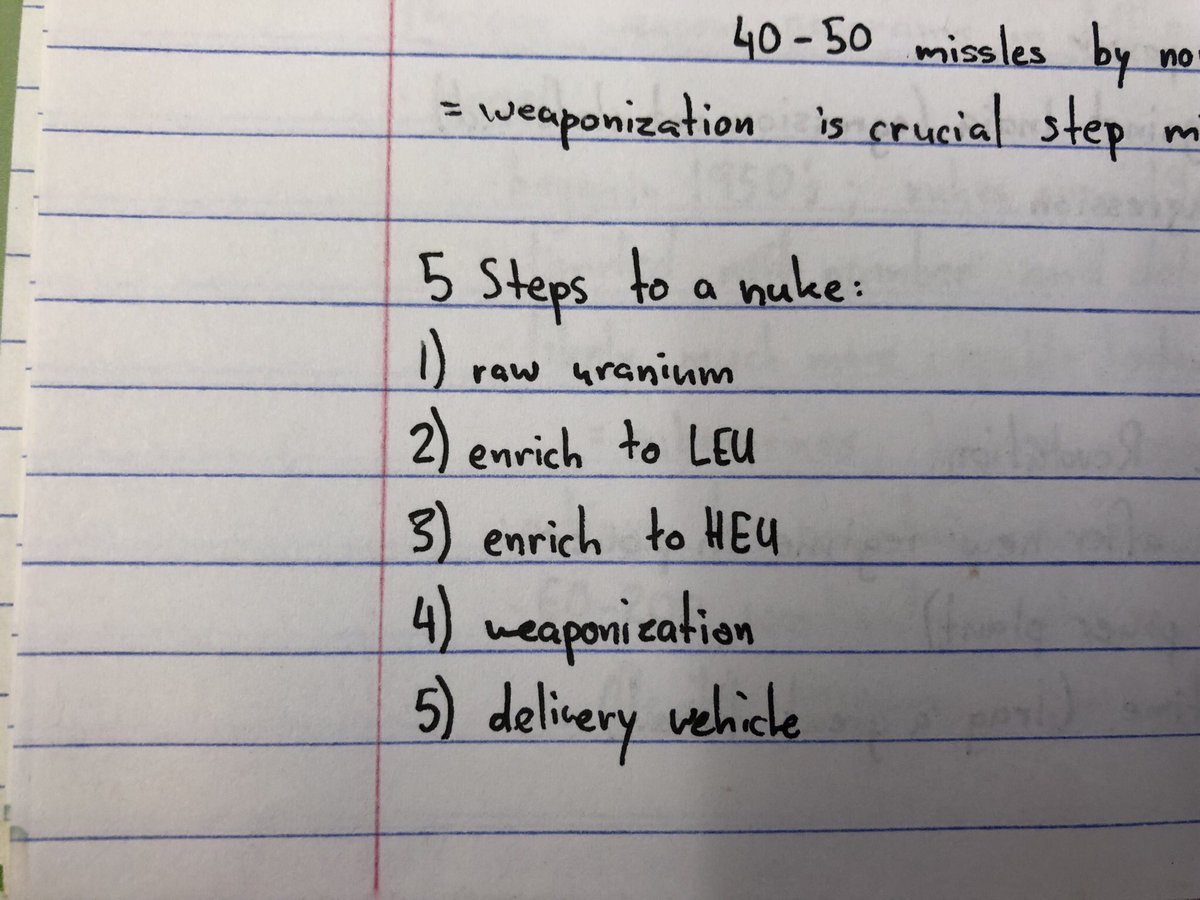 40-50 missles by
= weaponization is crucial step
5 Steps to a nuke:
1) raw uranium
2) enrich to LEU
3) enrich to HEU
4) weaponization
5) delivery vehicle